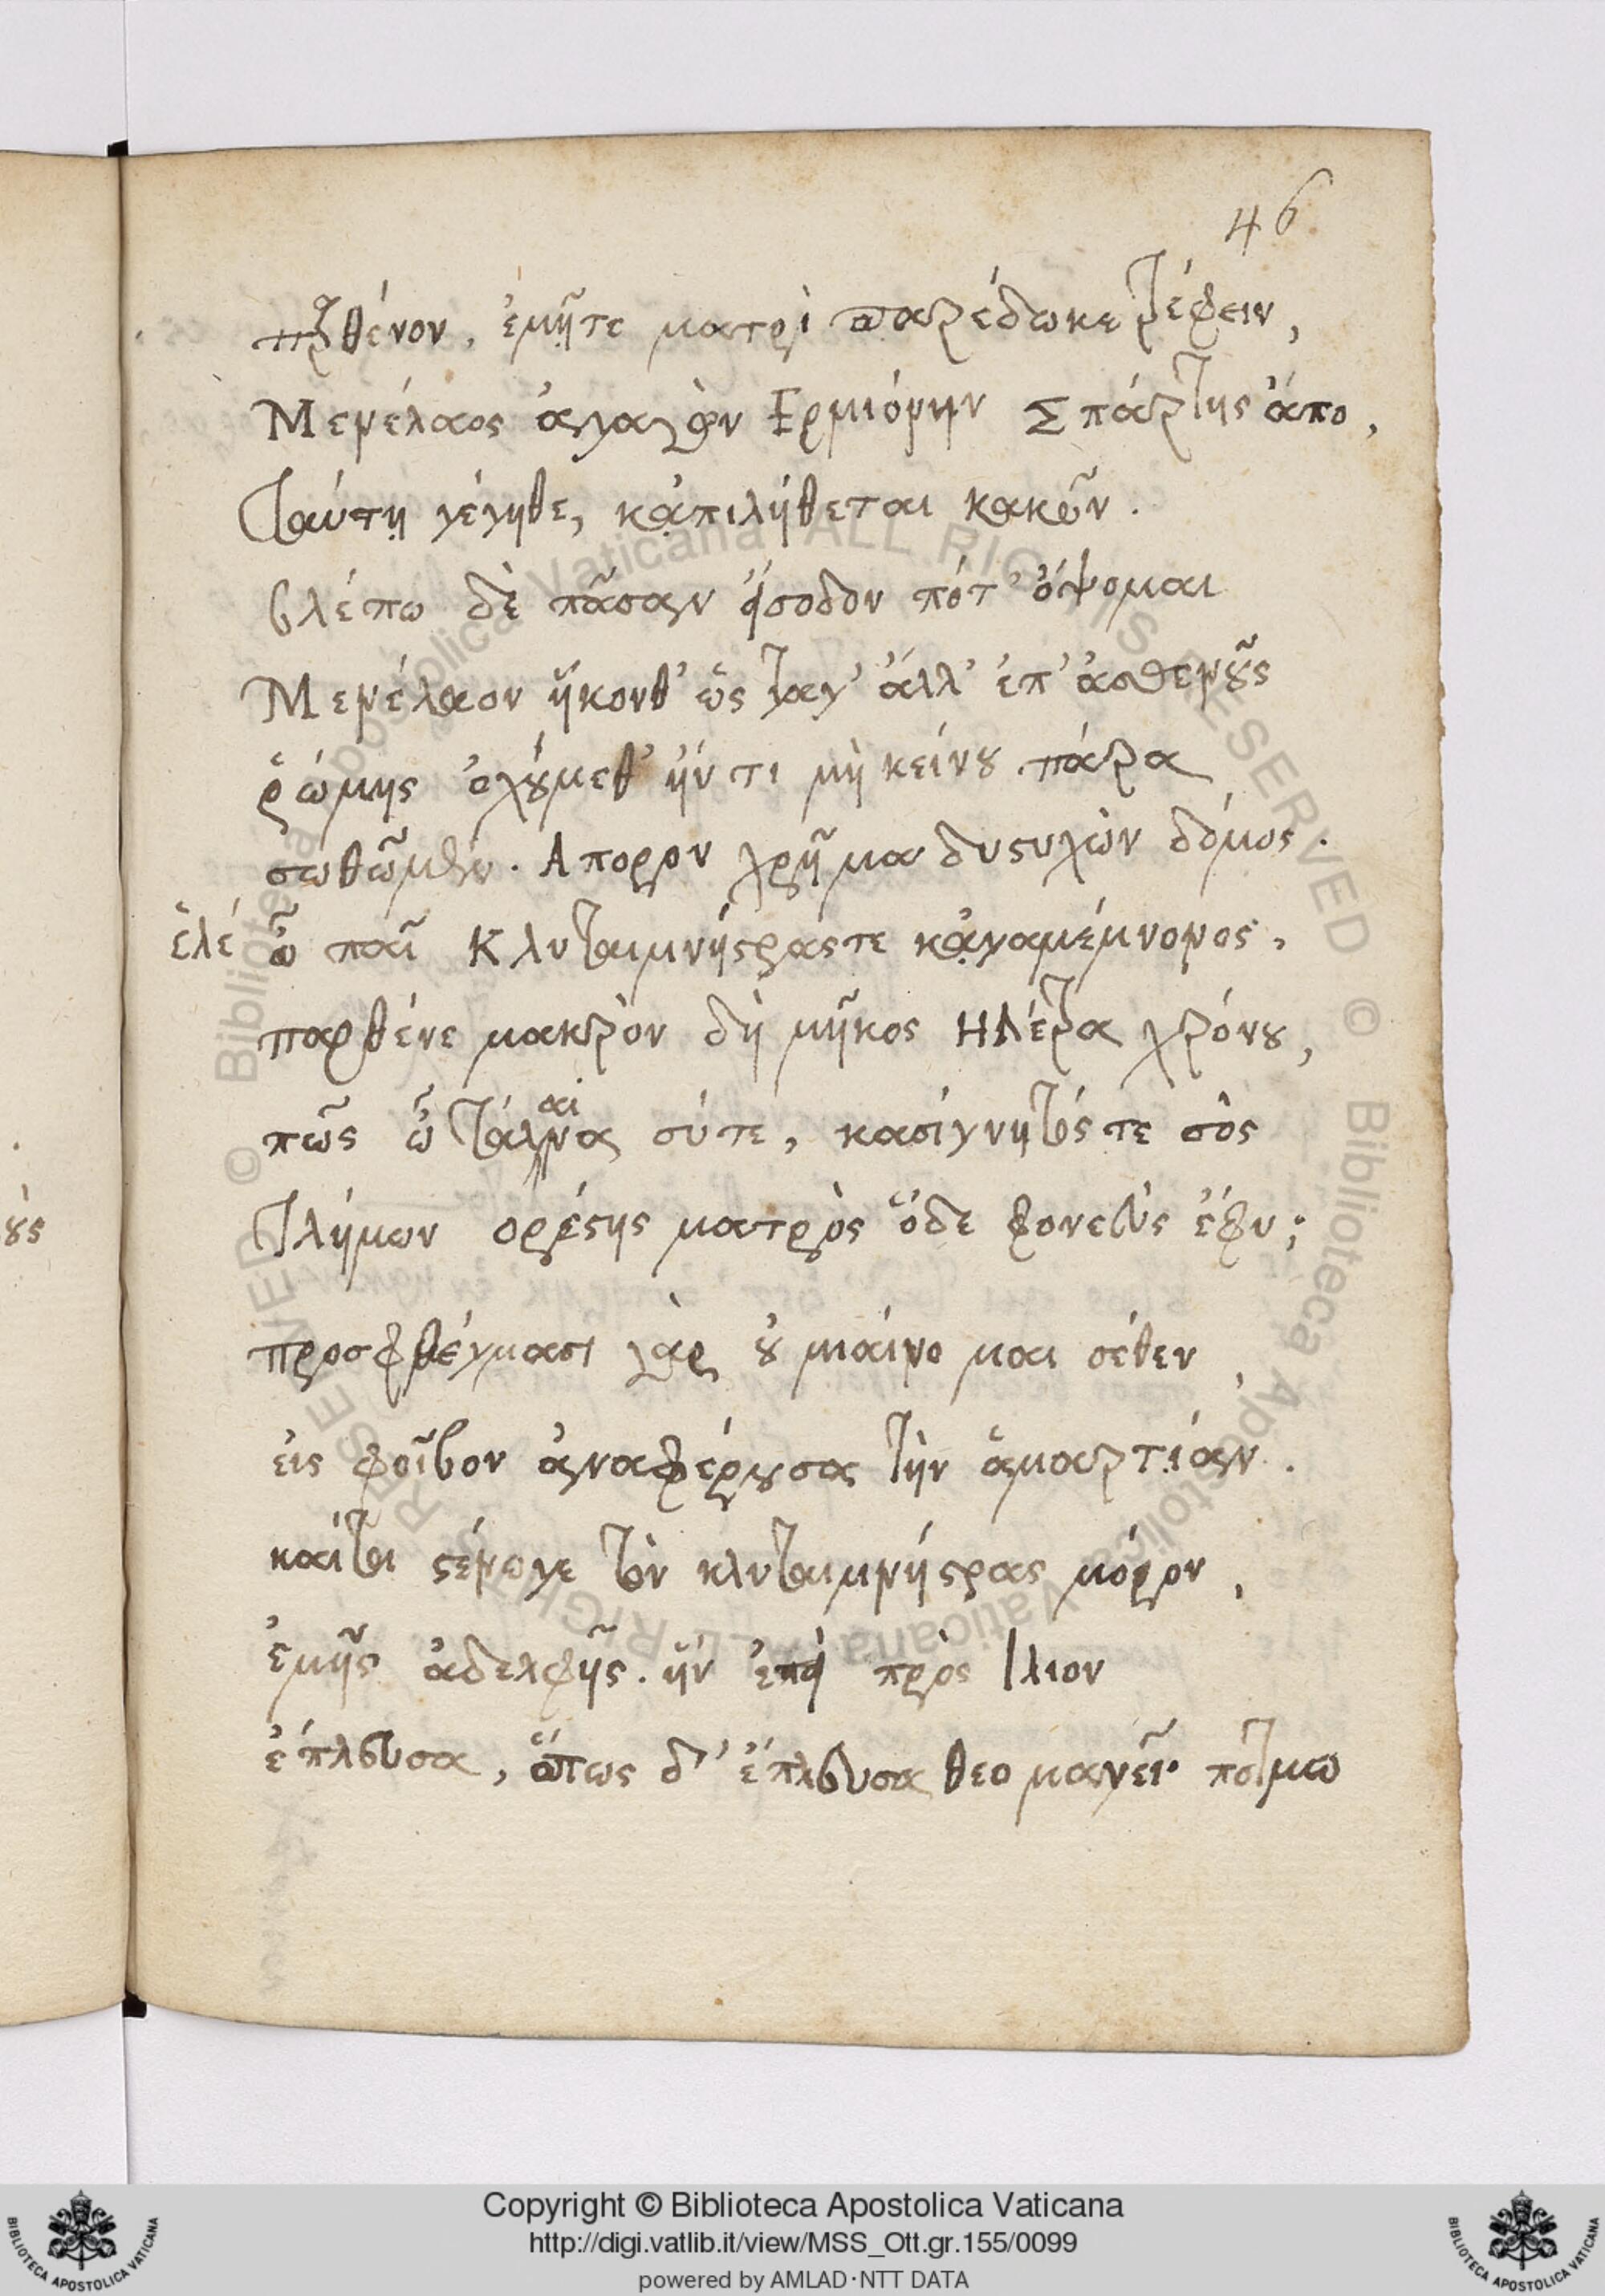 46
παρθένον, ἐμῇτε ματρὶ παρέδωκε τρέφειν,
Μενέλαος ἀγαγὼν Ερμιόνην Σπάρτης ἄπο,
ταύτῃ γέγηθε, κᾀπιλήθεται κακῶν.
βλέπω δὲ πᾶσαν εἴσοδον πότ' ὄψομαι
Μενέλαον ἥκονθ' ὡς τάγ' ἄλλ' ἐπ' ἀσθενοῦς
ῥώμης ὀχούμεθ' ἤν τι μὴ κείνου πάρα
σωθῶμεν. Απορον χρῆμα δυςυχῶν δόμος.
ἑλέ ὦ παῖ Κλυταιμνήςραςτε κᾀγαμέμνονος,
παρθένε μακρὸν δὴ μῆκος Ηλέκτρα χρόνου,
πῶς ὦ τάλαινα σύτε, κασίγνητός τε σὸς
τλήμων ορέςης ματρὸς ὅδε φονεὺς ἔφυ;
προσφθέγμασι γὰρ οὐ μιαίνομαι σέθεν,
εἰς φοῖβον ἀναφέρουσα τὴν ἁμαρτίαν.
καίτοι ςένωγε τὸν κλυταιμνήςρας μόρον,
ἐμῆς ἀδελφῆς. ἣν ἐπεὶ πρὸς Ιλιον
ἔπλευσα, ὅπως δ' ἔπλευσα θεομανεῖ πότμω
οὺς
Copyright © Biblioteca Apostolica Vaticana
http://digi.vatlib.it/view/MSS_Ott.gr.155/0099
powered by AMLAD·NTT DATA
BIBLIOTECA APOSTOLICA VATICANA
BIBLIOTECA APOSTOLICA VATICANA
© Biblioteca Apostolica Vaticana ALL RIGHTS RESERVED
© Biblioteca Apostolica Vaticana ALL RIGHTS RESERVED